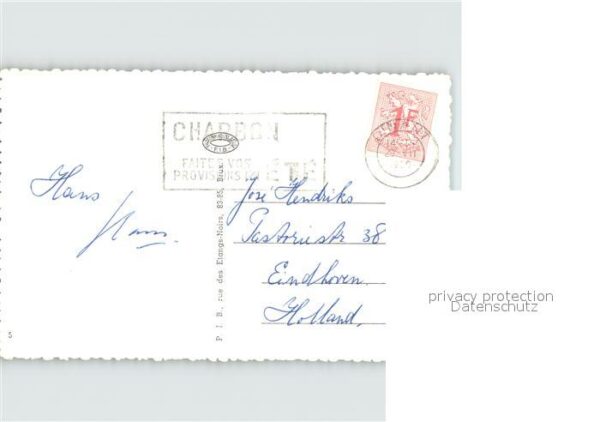 CHARBON
FAITES VOS
PROVISIONS ETE
1F
Hans
Hans.
José Hendriks
Pastoriestr 38
Eindhoven.
Holland.
P. I. B., rue des Etangs-Noirs, 83-85, Brux.
5
privacy protection
Datenschutz